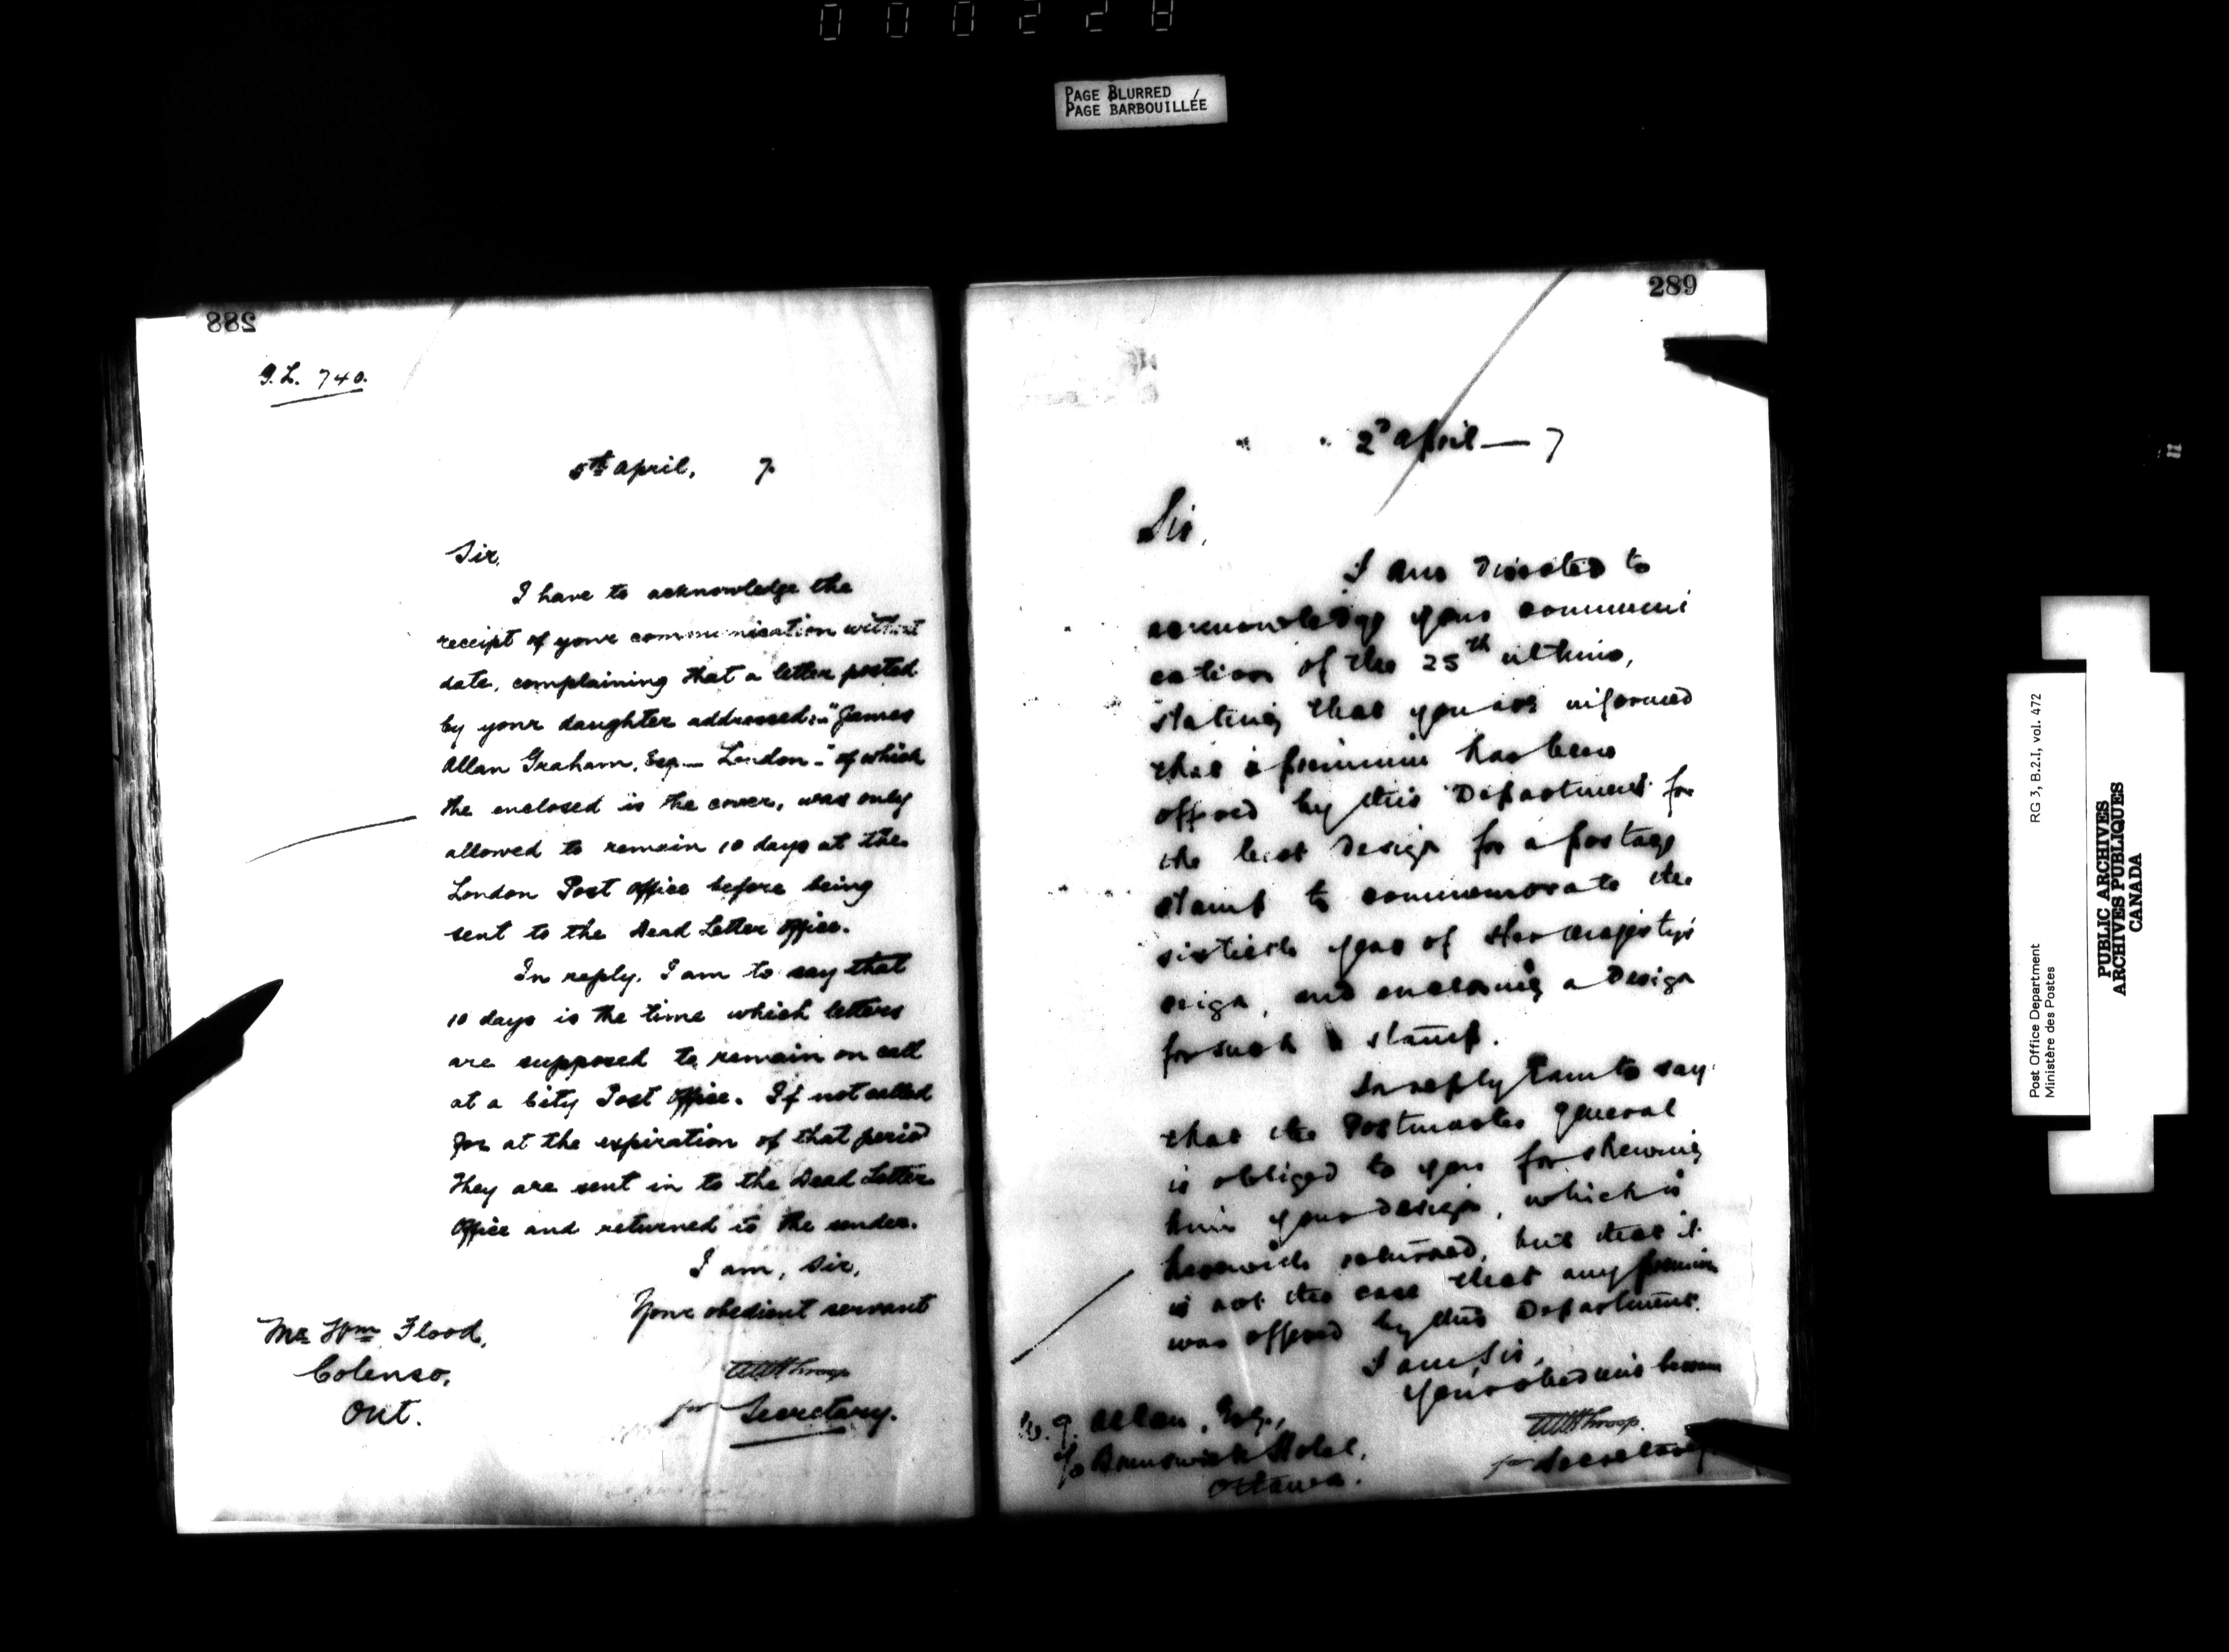 000228
PAGE BLURRED
PAGE BARBOUILLÉE
288
D.L. 740.
5th April, 7.
Sir,
I have to acknowledge the
receipt of your communication without
date, complaining that a letter posted
by your daughter addressed:- "James
Allan Graham, Esq._ London_" of which
the enclosed is the cover, was only
allowed to remain 10 days at the
London Post Office before being
sent to the Dead Letter Office.
In reply, I am to say that
10 days is the time which letters
are supposed to remain on call
at a City Post Office. If not called
for at the expiration of that period
they are sent in to the Dead Letter
Office and returned to the sender.
I am, Sir,
Your obedient servant
for Secretary.
Mr Wm Flood,
Colenso,
Ont.
289
2d April — 7
Sir,
I am directed to
acknowledge your communi
cation of the 25th ultimo,
stating that you are informed
that a premium has been
offered by this Department for
the best design for a postage
stamp to commemorate the
sixtieth year of Her Majesty's
reign, and enclosing a design
for such a stamp.
In reply I am to say
that the Postmaster General
is obliged to you for shewing
him your design, which is
herewith returned, but that it
is not the case that any premium
was offered by this Department.
I am, Sir,
Your obedient servant
for Secretary
Allan, Esq.,
c/o Brunswick Hotel,
Ottawa.
Post Office Department RG 3, B.2.I, vol. 472
Ministère des Postes
PUBLIC ARCHIVES
ARCHIVES PUBLIQUES
CANADA